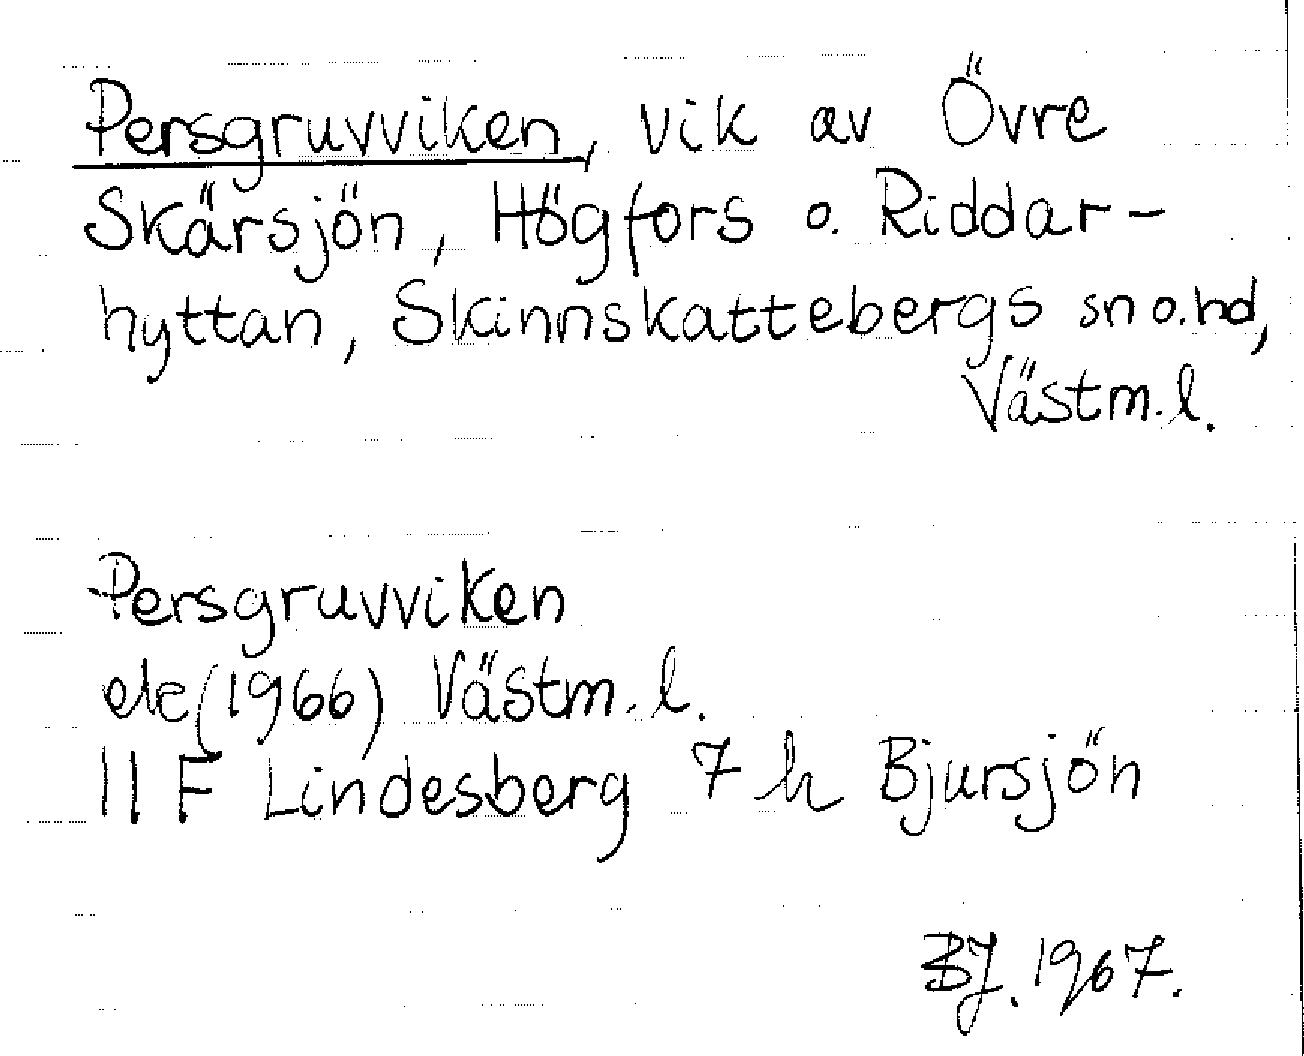 Persgruvviken, vik av Övre
Skärsjön, Högfors o. Riddar-
hyttan, Skinnskattebergs sn o. hd,
Västm. l.
Persgruvviken
ek (1966) Västm. l.
11 F Lindesberg 7 h Bjursjön
BJ. 1967.